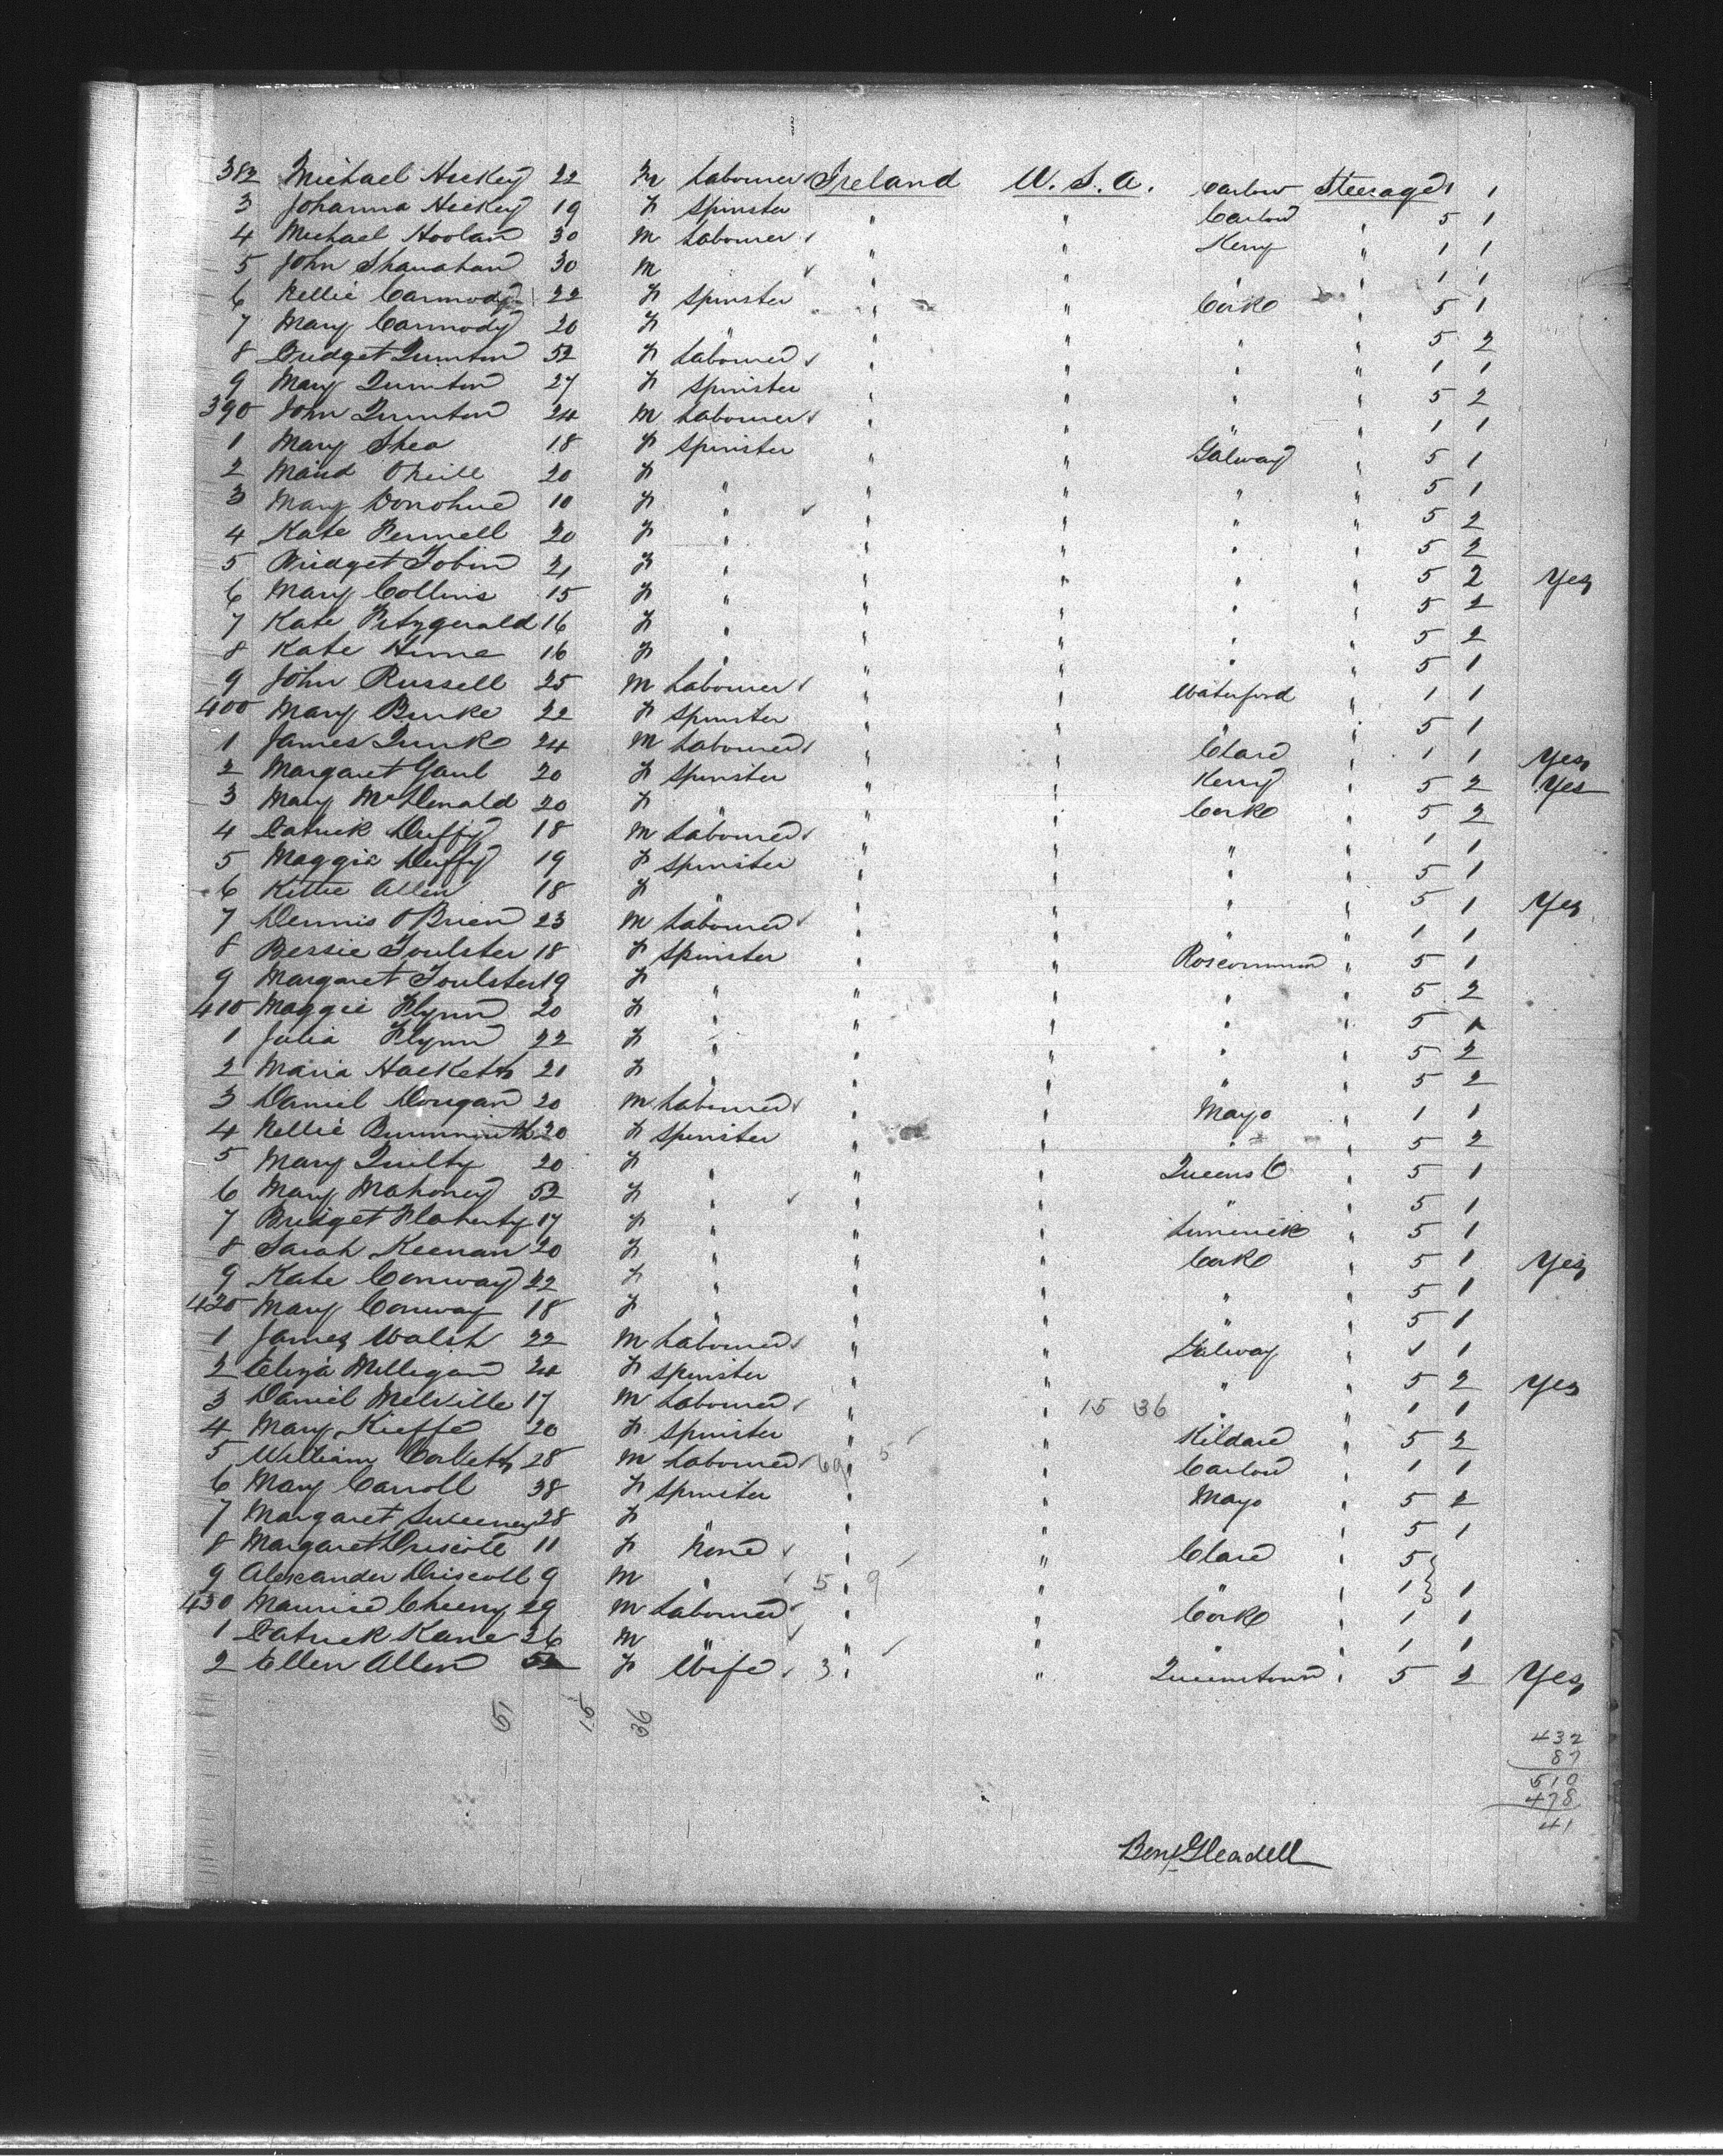 382 Michael Hickey 22 M Labourer Ireland U.S.A. Carlow Steerage 1 1
3 Johanna Hickey 19 F Spinster " " Carlow " 5 1
4 Michael Hoolan 30 M Labourer " " Kerry " 1 1
5 John Shanahan 30 M " " " " 1 1
6 Nellie Carmody 22 F Spinster " " Cork " 5 1
7 Mary Carmody 20 F " " " " " 5 2
8 Bridget Quinton 52 F Labourer " " " " 1 1
9 Mary Quinton 27 F Spinster " " " " 5 2
390 John Quinton 24 M Labourer " " " " 1 1
1 Mary Shea 18 F Spinster " " Galway " 5 1
2 Maud O'Neill 20 F " " " " " 5 1
3 Mary Donohue 10 F " " " " " 5 2
4 Kate Fennell 20 F " " " " " 5 2
5 Bridget Tobin 21 F " " " " " 5 2 Yes
6 Mary Collins 15 F " " " " " 5 2
7 Kate Fitzgerald 16 F " " " " " 5 2
8 Kate Hune 16 F " " " " " 5 1
9 John Russell 25 M Labourer " " Waterford " 1 1
400 Mary Burke 22 F Spinster " " " " 5 1
1 James Quirk 24 M Labourer " " Clare " 1 1 Yes
2 Margaret Gaul 20 F Spinster " " Kerry " 5 2 Yes
3 Mary McDonald 20 F " " " Cork " 5 2
4 Patrick Duffy 18 M Labourer " " " " 1 1
5 Maggie Duffy 19 F Spinster " " " " 5 1
6 Kittie Allen 18 F " " " " " 5 1 Yes
7 Dennis O'Brien 23 M Labourer " " " " 1 1
8 Bessie Foulster 18 F Spinster " " Roscommon " 5 1
9 Margaret Foulster 19 F " " " " " 5 2
410 Maggie Flynn 20 F " " " " " 5 1
1 Julia Flynn 22 F " " " " " 5 2
2 Maria Hackett 21 F " " " " " 5 2
3 Daniel Dougan 20 M Labourer " " Mayo " 1 1
4 Nellie 20 F Spinster " " " " 5 2
5 Mary Quilty 20 F " " " Queens Co " 5 1
6 Mary Mahoney 52 F " " " " " 5 1
7 Bridget Flaherty 17 F " " " Limerick " 5 1
8 Sarah Keenan 20 F " " " Cork " 5 1 Yes
9 Kate Conway 22 F " " " " " 5 1
420 Mary Conway 18 F " " " " " 5 1
1 James Walsh 22 M Labourer " " Galway " 1 1
2 Eliza Milligan 24 F Spinster " " " " 5 2 Yes
3 Daniel Melville 17 M Labourer " " 15 36 " " 1 1
4 Mary Kieffe 20 F Spinster " " Kildare " 5 2
5 William Corbett 28 M Labourer 69 " 5 " Carlow " 1 1
6 Mary Carroll 38 F Spinster " " Mayo " 5 2
7 Margaret Sweeney 28 F " " " " 5 1
8 Margaret Driscole 11 F None " " Clare " 5
9 Alexander Driscoll 9 M " 5 " 9 " " " 1 1
430 Maurice Cheeny 29 M Labourer " " Cork " 1 1
1 Patrick Kane 26 M " " " " " 1 1
2 Ellen Allen 52 F Wife 3 " " Queenstown " 5 2 Yes
51 15 36
432
87
510
478
41
Benj Gleadell